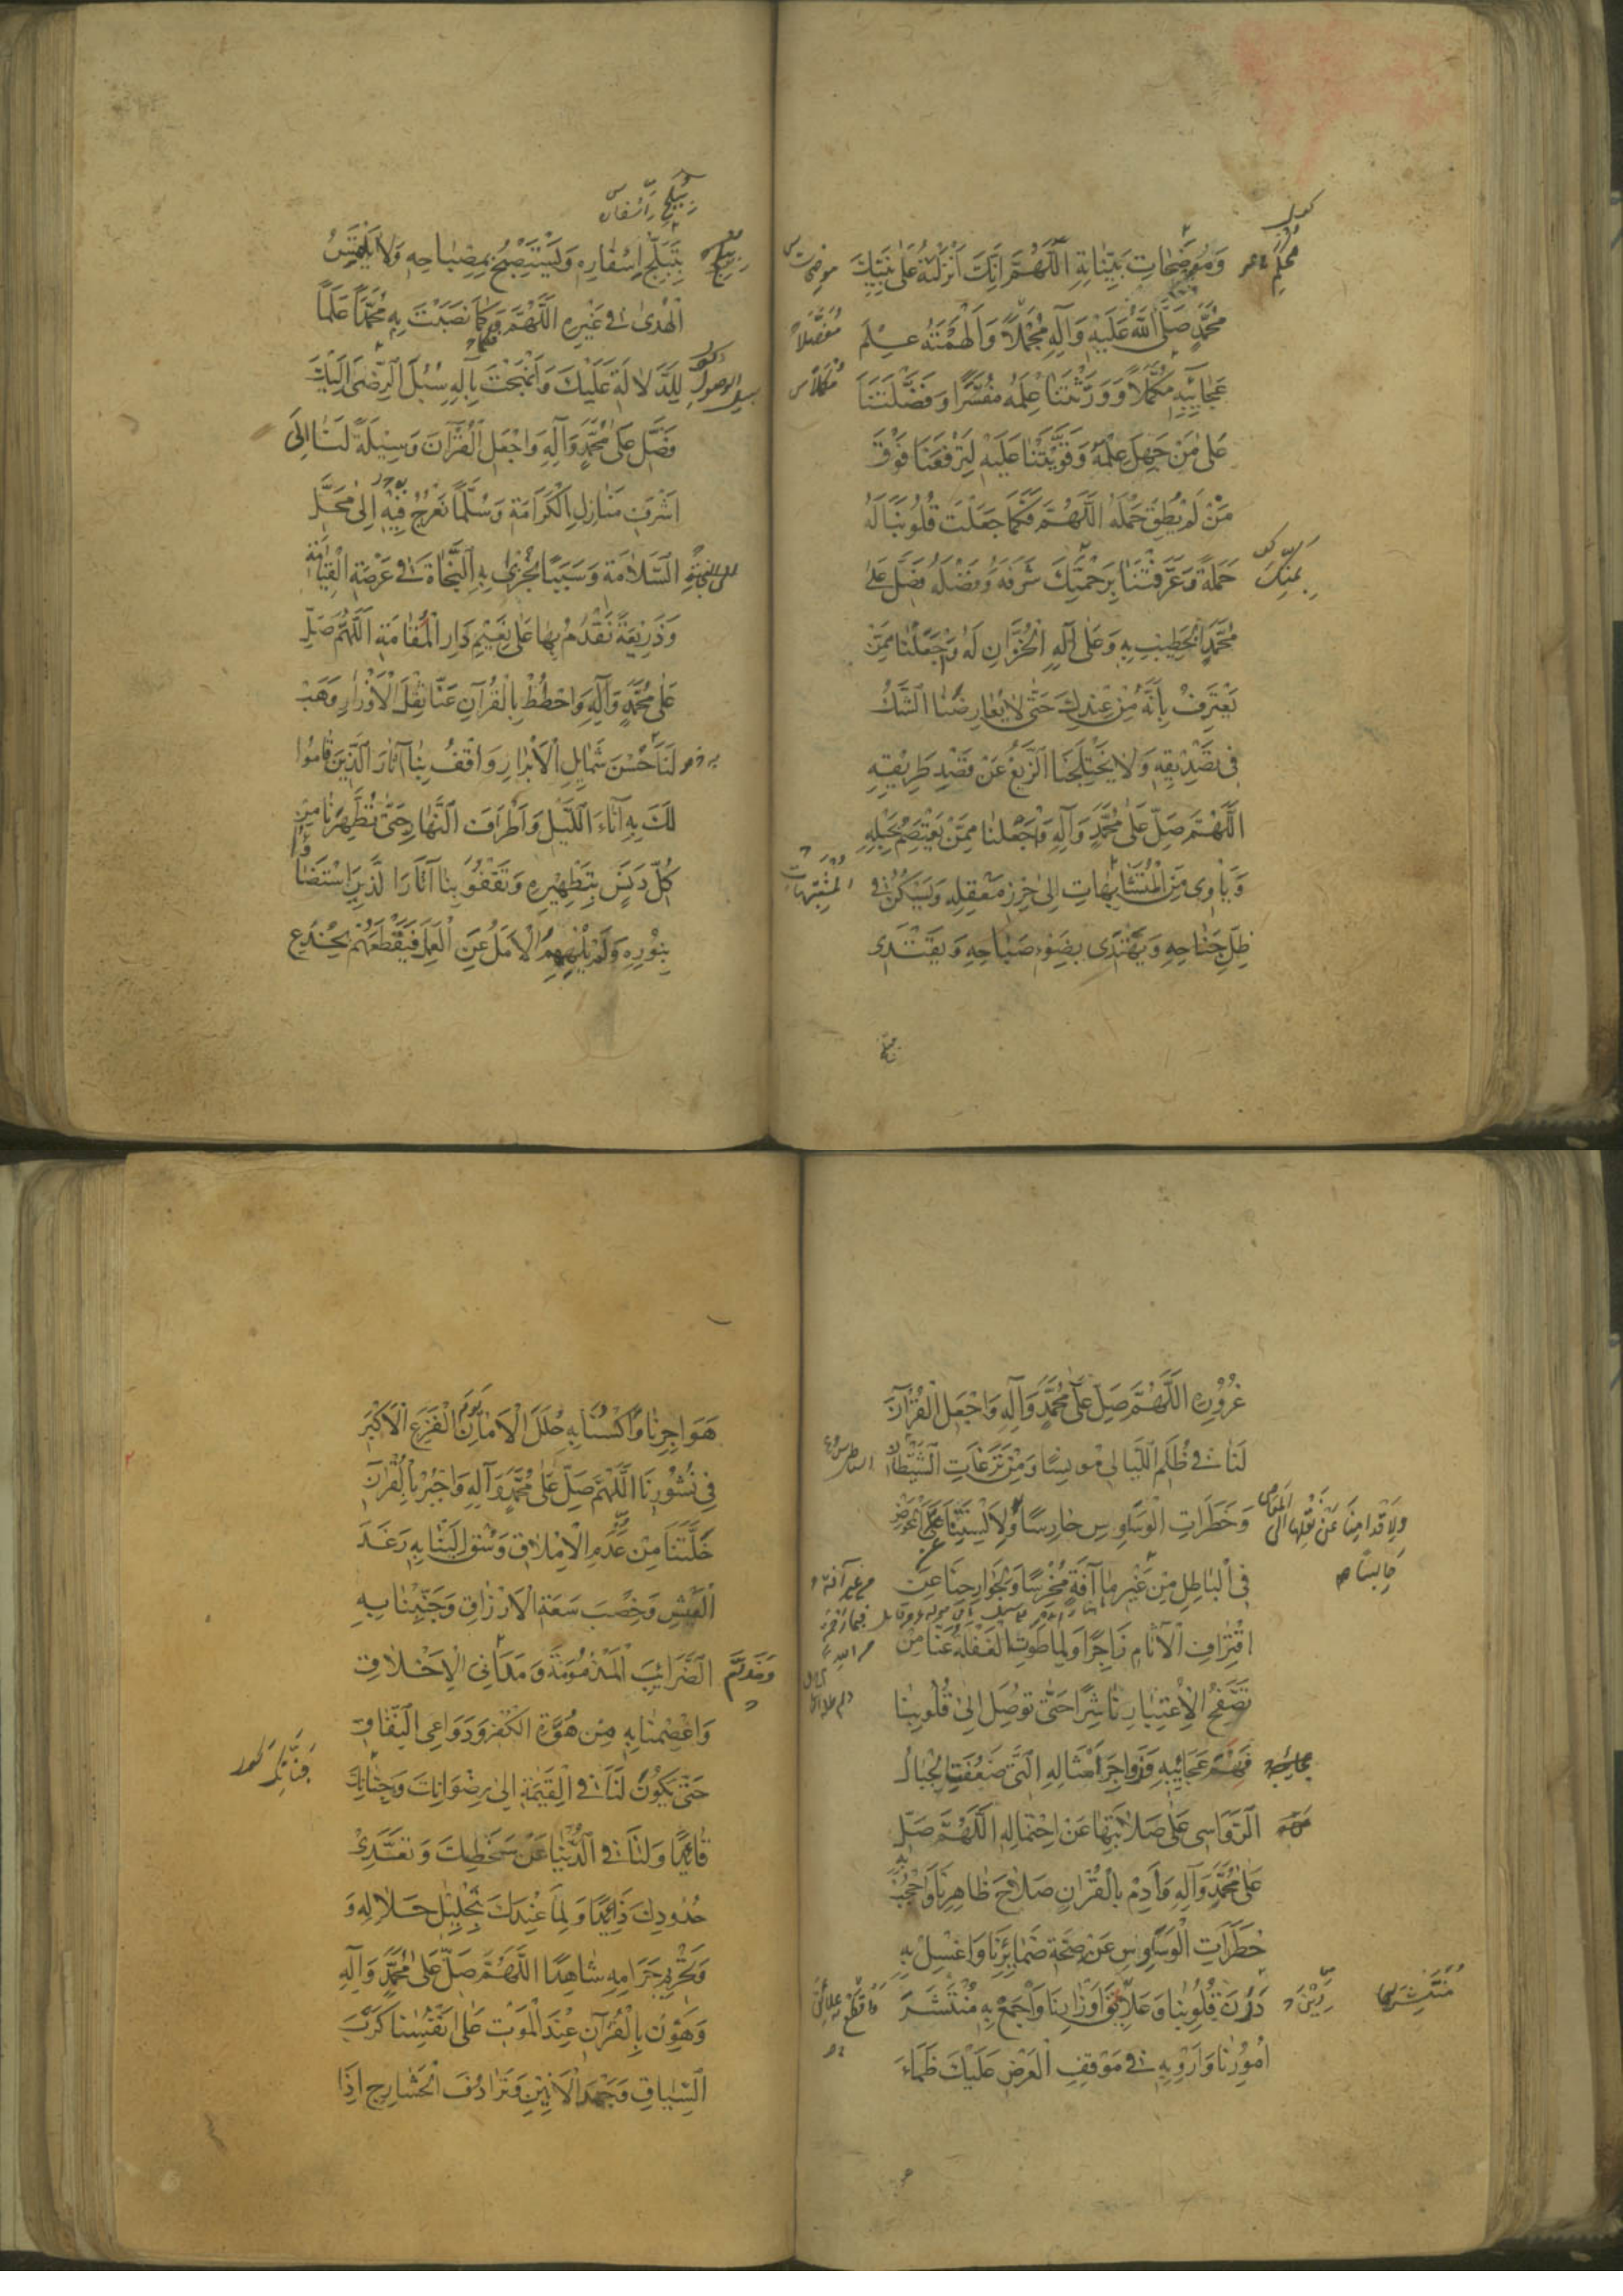 وَمُوضَحَاتِ بَيِّنَاتِهِ اَللّٰهُمَّ اِنَّكَ اَنْزَلْتَهُ عَلَى نَبِيِّكَ
مُحَمَّدٍ صَلَّى اللهُ عَلَيْهِ وَآلِهِ مُجْمَلًا وَاَلْهَمْتَهُ عِلْمَ
عَجَايِبِهِ مُكَمَّلًا وَوَرَّثْتَنَا عِلْمَهُ مُفَسَّرًا وَفَضَّلْتَنَا
عَلَى مَنْ جَهِلَ عِلْمَهُ وَقَوَّيْتَنَا عَلَيْهِ لِتَرْفَعَنَا فَوْقَ
مَنْ لَمْ يُطِقْ حَمْلَهُ اَللّٰهُمَّ فَكَمَا جَعَلْتَ قُلُوبَنَا لَهُ
حَمَلَةً وَعَرَّفْتَنَا بِرَحْمَتِكَ شَرَفَهُ وَفَضْلَهُ فَصَلِّ عَلَى
مُحَمَّدٍ الْخَطِيبِ بِهِ وَعَلَى آلِهِ الْخُزَّانِ لَهُ وَاجْعَلْنَا مِمَّنْ
يَعْتَرِفُ بِاَنَّهُ مِنْ عِنْدِكَ حَتَّى لَا يُعَارِضَنَا الشَّكُّ
فِي تَصْدِيقِهِ وَلَا يَخْتَلِجَنَا الزَّيْغُ عَنْ قَصْدِ طَرِيقِهِ
اَللّٰهُمَّ صَلِّ عَلَى مُحَمَّدٍ وَآلِهِ وَاجْعَلْنَا مِمَّنْ يَعْتَصِمُ بِحَبْلِهِ
وَيَأْوِي مِنَ الْمُتَشَابِهَاتِ اِلَى حِرْزِ مَعْقِلِهِ وَيَسْكُنُ فِي
ظِلِّ جَنَاحِهِ وَيَهْتَدِي بِضَوْءِ صَبَاحِهِ وَيَقْتَدِي
مُفَصَّلًا
بِتَبَلُّجِ اِسْفَارِهِ وَيَسْتَصْبِحُ بِمِصْبَاحِهِ وَلَا يَلْتَمِسُ
الْهُدَى فِي غَيْرِهِ اَللّٰهُمَّ وَكَمَا نَصَبْتَ بِهِ مُحَمَّدًا عَلَمًا
لِلدَّلَالَةِ عَلَيْكَ وَاَنْهَجْتَ بِآلِهِ سُبُلَ الرِّضَى اِلَيْكَ
فَصَلِّ عَلَى مُحَمَّدٍ وَآلِهِ وَاجْعَلِ الْقُرْآنَ وَسِيلَةً لَنَا اِلَى
اَشْرَفِ مَنَازِلِ الْكَرَامَةِ وَسُلَّمًا نَعْرُجُ فِيهِ اِلَى مَحَلِّ
السَّلَامَةِ وَسَبَبًا نُجْزَى بِهِ النَّجَاةَ فِي عَرْصَةِ الْقِيَامَةِ
وَذَرِيعَةً نَقْدُمُ بِهَا عَلَى نَعِيمِ دَارِ الْمُقَامَةِ اَللّٰهُمَّ صَلِّ
عَلَى مُحَمَّدٍ وَآلِهِ وَاحْطُطْ بِالْقُرْآنِ عَنَّا ثِقْلَ الْاَوْزَارِ وَهَبْ
لَنَا حُسْنَ شَمَايِلِ الْاَبْرَارِ وَاقْفُ بِنَا آثَارَ الَّذِينَ قَامُوا
لَكَ بِهِ آنَاءَ اللَّيْلِ وَاَطْرَافَ النَّهَارِ حَتَّى تُطَهِّرَنَا مِنْ
كُلِّ دَنَسٍ بِتَطْهِيرِهِ وَتَقْفُوَ بِنَا آثَارَ الَّذِينَ اسْتَضَاؤُا
بِنُورِهِ وَلَمْ يُلْهِهِمُ الْاَمَلُ عَنِ الْعَمَلِ فَيَقْطَعَهُمْ بِخُدَعِ
غُرُورِهِ اَللّٰهُمَّ صَلِّ عَلَى مُحَمَّدٍ وَآلِهِ وَاجْعَلِ الْقُرْآنَ
لَنَا فِي ظُلَمِ اللَّيَالِي مُونِسًا وَمِنْ نَزَغَاتِ الشَّيْطَانِ
وَخَطَرَاتِ الْوَسَاوِسِ حَارِسًا وَلِاَلْسِنَتِنَا عَنِ الْخَوْضِ
فِي الْبَاطِلِ مِنْ غَيْرِ مَا آفَةٍ مُخْرِسًا وَلِجَوَارِحِنَا عَنِ
اقْتِرَافِ الْآثَامِ زَاجِرًا وَلِمَا طَوَتِ الْغَفْلَةُ عَنَّا مِنْ
تَصَفُّحِ الْاِعْتِبَارِ نَاشِرًا حَتَّى تُوصِلَ اِلَى قُلُوبِنَا
فَهْمَ عَجَايِبِهِ وَزَوَاجِرَ اَمْثَالِهِ الَّتِي ضَعُفَتِ الْجِبَالُ
الرَّوَاسِي عَلَى صَلَابَتِهَا عَنِ احْتِمَالِهِ اَللّٰهُمَّ صَلِّ
عَلَى مُحَمَّدٍ وَآلِهِ وَاَدِمْ بِالْقُرْآنِ صَلَاحَ ظَاهِرِنَا وَاحْجُبْ بِهِ
خَطَرَاتِ الْوَسَاوِسِ عَنْ صِحَّةِ ضَمَائِرِنَا وَاغْسِلْ بِهِ
دَرَنَ قُلُوبِنَا وَعَلَايِقَ اَوْزَارِنَا وَاجْمَعْ بِهِ مُنْتَشَرَ
اُمُورِنَا وَاَرْوِ بِهِ فِي مَوْقِفِ الْعَرْضِ عَلَيْكَ ظَمَاءَ
هَوَاجِرِنَا وَاكْسُنَا بِهِ حُلَلَ الْاَمَانِ يَوْمَ الْفَزَعِ الْاَكْبَرِ
فِي نُشُورِنَا اَللّٰهُمَّ صَلِّ عَلَى مُحَمَّدٍ وَآلِهِ وَاجْبُرْ بِالْقُرْآنِ
خَلَّتَنَا مِنْ عَدَمِ الْاِمْلَاقِ وَسُقْ اِلَيْنَا بِهِ رَغَدَ
الْعَيْشِ وَخِصْبَ سَعَةِ الْاَرْزَاقِ وَجَنِّبْنَا بِهِ
الضَّرَائِبَ الْمَذْمُومَةَ وَمَدَانِيَ الْاَخْلَاقِ
وَاعْصِمْنَا بِهِ مِنْ هُوَّةِ الْكُفْرِ وَدَوَاعِي النِّفَاقِ
حَتَّى يَكُونَ لَنَا فِي الْقِيٰمَةِ اِلَى رِضْوَانِكَ وَجِنَانِكَ
قَائِدًا وَلَنَا فِي الدُّنْيَا عَنْ سَخَطِكَ وَتَعَدِّي
حُدُودِكَ ذَائِدًا وَلِمَا عِنْدَكَ بِتَحْلِيلِ حَلَالِهِ وَ
وَتَحْرِيمِ حَرَامِهِ شَاهِدًا اَللّٰهُمَّ صَلِّ عَلَى مُحَمَّدٍ وَآلِهِ
وَهَوِّنْ بِالْقُرْآنِ عِنْدَ الْمَوْتِ عَلَى اَنْفُسِنَا كَرْبَ
السِّيَاقِ وَجَهْدَ الْاَنِينِ وَتَرَادُفَ الْحَشَارِجِ اِذَا